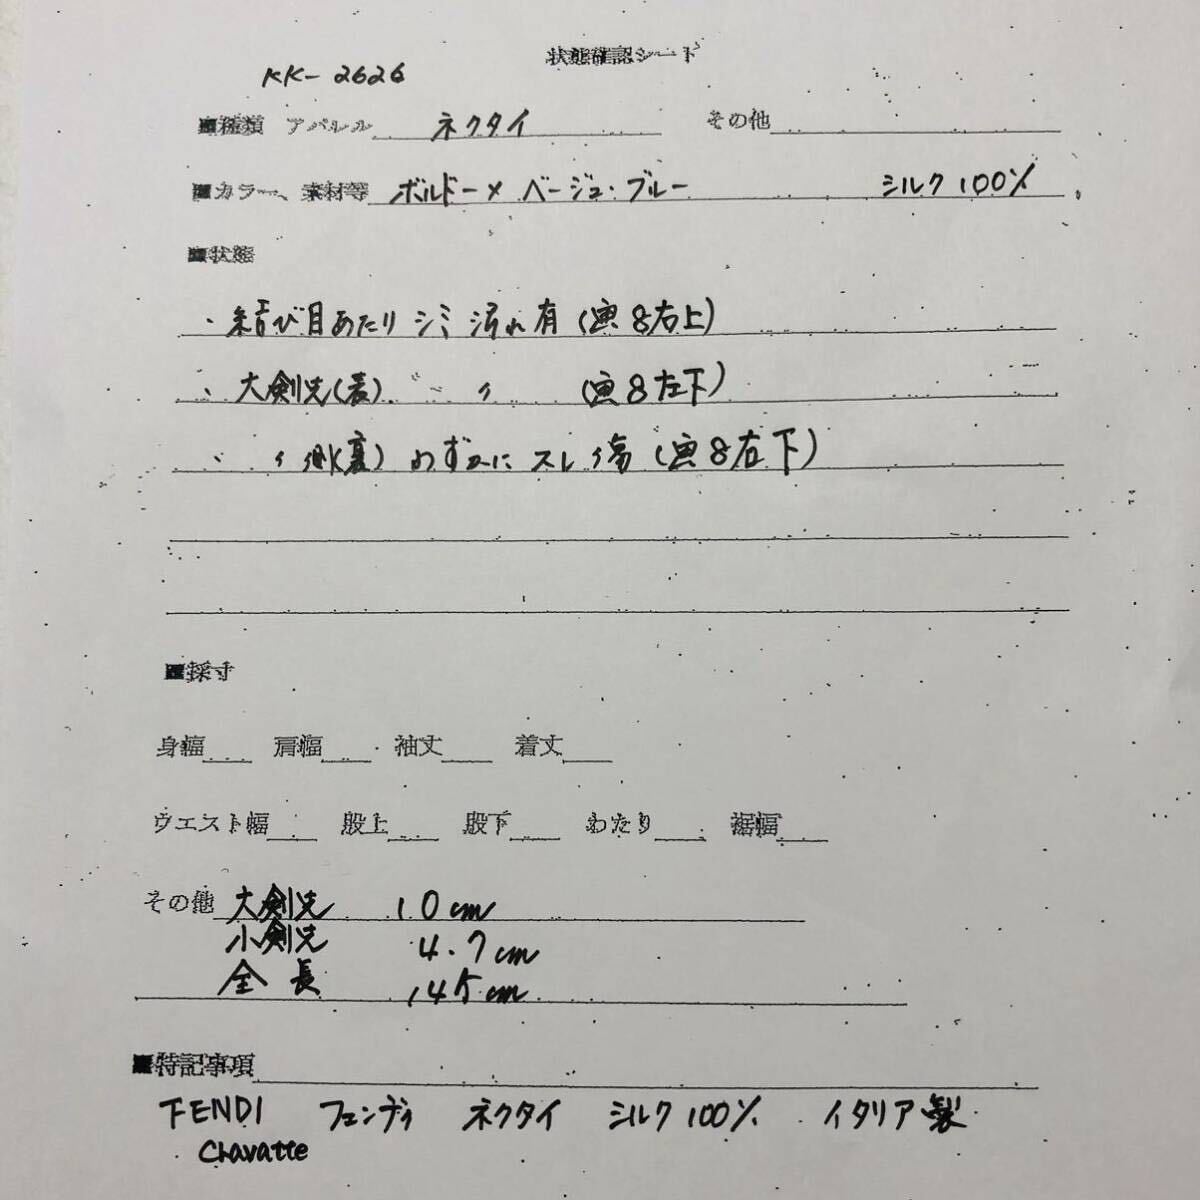 状態確認シート
KK-2626
■種類 アパレル ネクタイ その他
■カラー、素材等 ボルドー×ベージュ・ブルー シルク100%
■状態
・結び目あたりシミ汚れ有(画8右上)
・大剣先(表) 〃 〃 (画8左下)
・ 〃 側(裏) わずかにスレ傷(画8右下)
■採寸
身幅 肩幅 袖丈 着丈
ウエスト幅 股上 股下 わたり 裾幅
その他 大剣先 10cm
小剣先 4.7cm
全長 145cm
■特記事項
FENDI フェンディ ネクタイ シルク100% イタリア製
Chavatte